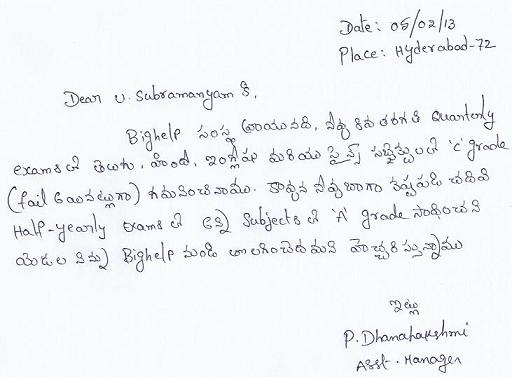 Date: 05/02/13
Place: Hyderabad-72
Dear U. Subramanyam కి,
Bighelp సంస్థ వ్రాయునది, నీవు 8వ తరగతి Quarterly
exams లో తెలుగు, హిందీ, ఇంగ్లీషు మరియు సైన్స్ సబ్జెక్టులలో 'C' grade
(fail అయినట్లుగా) గమనించినాము. కావున నీవు బాగా కష్టపడి చదివి
Half-yearly Exams లో అన్ని Subjects లో 'A' grade సాధించని
యెడల నిన్ను Bighelp నుండి తొలగించెదమని హెచ్చరిస్తున్నాము
ఇట్లు
P. Dhanalakshmi
Asst. Manager